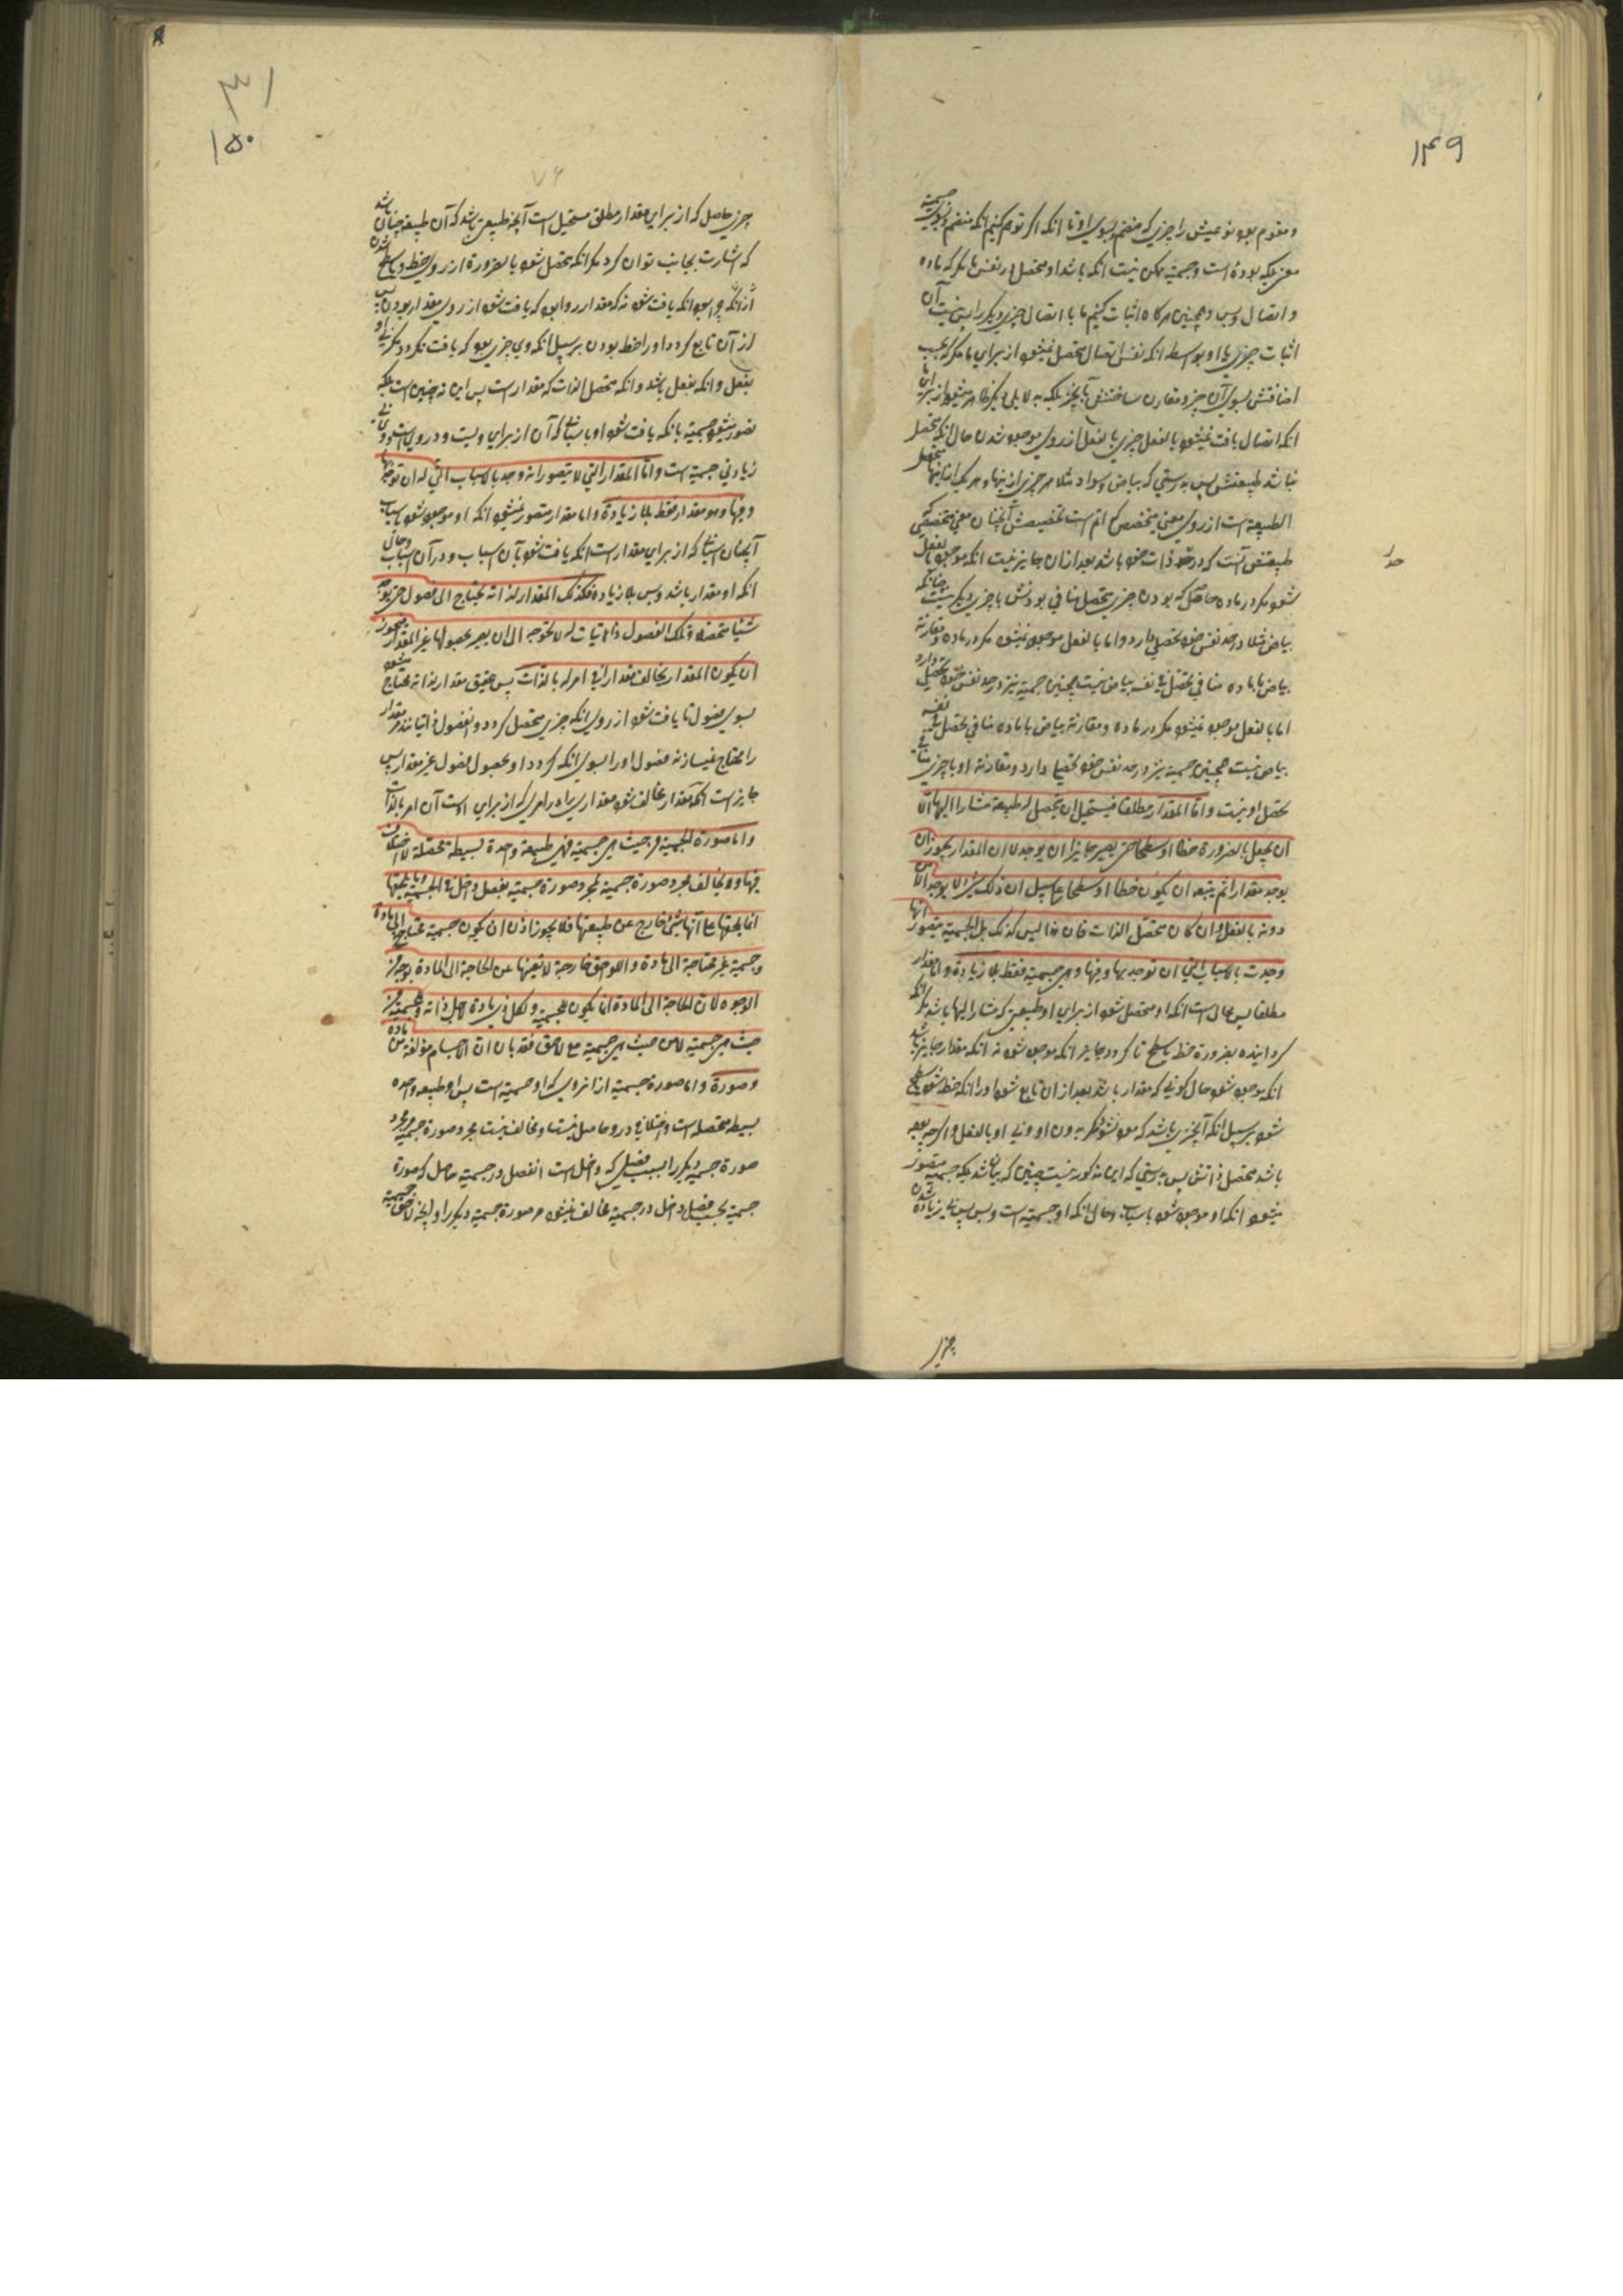 ١٤٩
و مقوم بود نوعیتش را چیزی که منضم بسوی او تا انکه اگر توهم کنیم انکه منضم بسوی جسمیة
معنی بلکه بوده است و جسمیة ممکن نیست انکه باشد او متحصل در نفس ما مگر که ماده
و اتصال و بس و همچنین هرگاه اثبات کنیم ما با اتصال چیزی دیگر را پس نیست آن
اثبات چیزی با او بواسطه انکه نفس اتصال متحصل نمیشود از برای ما مگر که بحسب
اضافتش بسوی آن چیز و مقارن ساختنش بآنچیز بلکه به دلایلی دیگر ظاهر میشود از برای ما
انکه اتصال یافت نمیشود بالفعل چیزی بالفعل از روی موجود شدن حال انکه متحصل
نباشد طبیعتش پس بدرستی که بیاض و سواد مثلا هر چیزی از اینها و هر یک از اینها متحصل
الطبیعة است از روی معنی متخصص که اتم است تخصیصش آنچنان معنی تخصیصی که
طبیعتش آنست که در حد ذات خود باشد بعد از ان جایز نیست انکه موجود بالفعل
حد
شود مگر در ماده حاصل که بودن چیزی متحصل منافی بودنش با چیزی دیگر نیست چنانکه
بیاض مثلا در حد نفس خود تحصلی دارد و اما بالفعل موجود نمیشود مگر در ماده و مقارنة
بیاض با ماده منافی تحصل فی نفسه بیاض نیست همچنین جسمیة نیز در حد نفس خود تحصلی دارد
اما بالفعل موجود نمیشود مگر در ماده و مقارنة بیاض با ماده منافی تحصل فی نفسه
بیاض نیست همچنین جسمیة نیز در حد نفس خود تحصلی دارد و مقارنة او با چیزی منافی
تحصل او نیست و امّا المقدار مطلقا فیستحیل ان یتحصل له طبیعة مشارا الیها الّا
ان یجعل بالضرورة خطا او سطحا حتی یصیر جایزا ان یوجد لا ان المقدار یجوز ان
یوجد مقدارا ثم یتبعه ان یکون خطا او سطحا علی سبیل ان ذلک شئ لا یوجد الامر
دونه بالفعل و ان کان متحصّل الذات فان هذا لیس کذلک بل الجسمیة یتصور انها
وجدت بالاسباب التی لها ان توجد بها و فیها و هی جسمیة فقط بلا زیادة و اما مقدار
مطلقا پس محال است انکه او متحصل شود از برای او طبیعتی که مشارا الیها باشد مگر انکه
گردانیده بضرورة خط یا سطح تا گردد جایز انکه موجود شود نه انکه مقدار جایز باشد
انکه موجود شود حال کونی که مقدار باشد بعد از ان تابع شود او را انکه خط شود یا سطح
شود بر سبیل انکه آنچیزی باشد که موجود نشود مگر بدون او و نی او بالفعل و اگرچه بوده
باشد متحصل ذاتش پس بدرستی که این مذکور نیست چنین که بیان شد بلکه جسمیة متصور
میشود انکه او موجود شود باسباب و حال انکه او جسمیة است و بس بی زیاده شدن
چیزی
٣١
١٥٠
٧٤
چیزی حاصل که از برای مقدار مطلق مستحیل است آنچه طبیعتی باشد که آن طبیعة چنان باشد
که اشارت بجانب توان کرد مگر انکه متحصل شود بالضرورة از روی خط و یا سطح شدن
از انکه جایز بود انکه یافت شود نه که مقدار روا بود که یافت شود از روی مقدار بودن پس
از آن تابع گردد او را خط بودن بر سبیل انکه وی چیزی بود که یافت نگردد مگر نی او
بفعل و انکه بفعل باشد و انکه متحصل الذات که مقدار است پس این نه چنین است بلکه
تصور میشود جسمیة بانکه یافت شود او با سببهائی که آن از برای ویست و در وی است و وی بی
زیادتی جسمیة است و امّا المقدار التی لا یتصور انه وجد بالاسباب التی له ان توجد بها
و فیها و هو مقدار فقط بلا زیادة و اما مقدار متصور نمیشود انکه او موجود شود باسباب
آنچنان اسبابی که از برای مقدار است انکه یافت شود بآن اسباب و در آن اسباب و حال
انکه او مقدار باشد و بس بلا زیاده فکذلک المقدار لذاته یحتاج الی فصول حتی یوجد
شیئا متحصلا و تلک الفصول ذاتیات له لا تحوجه الی ان یصیر بحصولها غیر المقدار فیجوز
ان یکون المقدار یخالف مقدارا فی امر له بالذات پس حقیق مقدار لذاته محتاج میشود
بسوی فصول تا یافت شود از روی انکه چیزی متحصل گردد و فصول ذاتیاتند مقدار
را محتاج نمیسازند فصول او را بسوی انکه گردد او بحصول فصول غیر مقدار پس
جایز است انکه مقدار مخالف شود مقداری را در امری که از برای اوست آن امر بالذات
و اما صورة الجسمیة من حیث هی جسمیة فهی طبیعة واحدة بسیطة محصّلة لا اختلاف
فیها و لا یخالف مجرد صورة جسمیة لمجرد صورة جسمیة بفصل داخل فی الجسمیة و ما یلحقها
انما یلحقها علی انها شئ خارج عن طبیعتها فلا یجوز اذن ان یکون جسمیة محتاجة الی مادة
و جسمیة غیر محتاجة الی مادة و اللواحق خارجة لا تغنیها عن الحاجة الی المادة بوجه من
الوجوه لان الحاجة الی المادة انما یکون للجسمیة و لکل ذی مادة لاجل ذاته و للجسمیة من
حیث هی جسمیة لا من حیث هی جسمیة مع لاحق فقد بان ان الاجسام مؤلفة من مادة
و صورة و اما صورة جسمیة از آنروی که او جسمیة است پس او طبیعه واحده
بسیط متحصله است و اختلافی در و حاصل نیست و مخالف نیست مجرد صورة جسمیة مر مجرد
صورة جسمیه دیگر را بسبب فصلی که داخل است انفصل در جسمیة حاصل که صورة
جسمیة بحسب فصل داخل در جسمیة مخالف نمیشود مر صورة جسمیة دیگر را و آنچه لاحق جسمیة